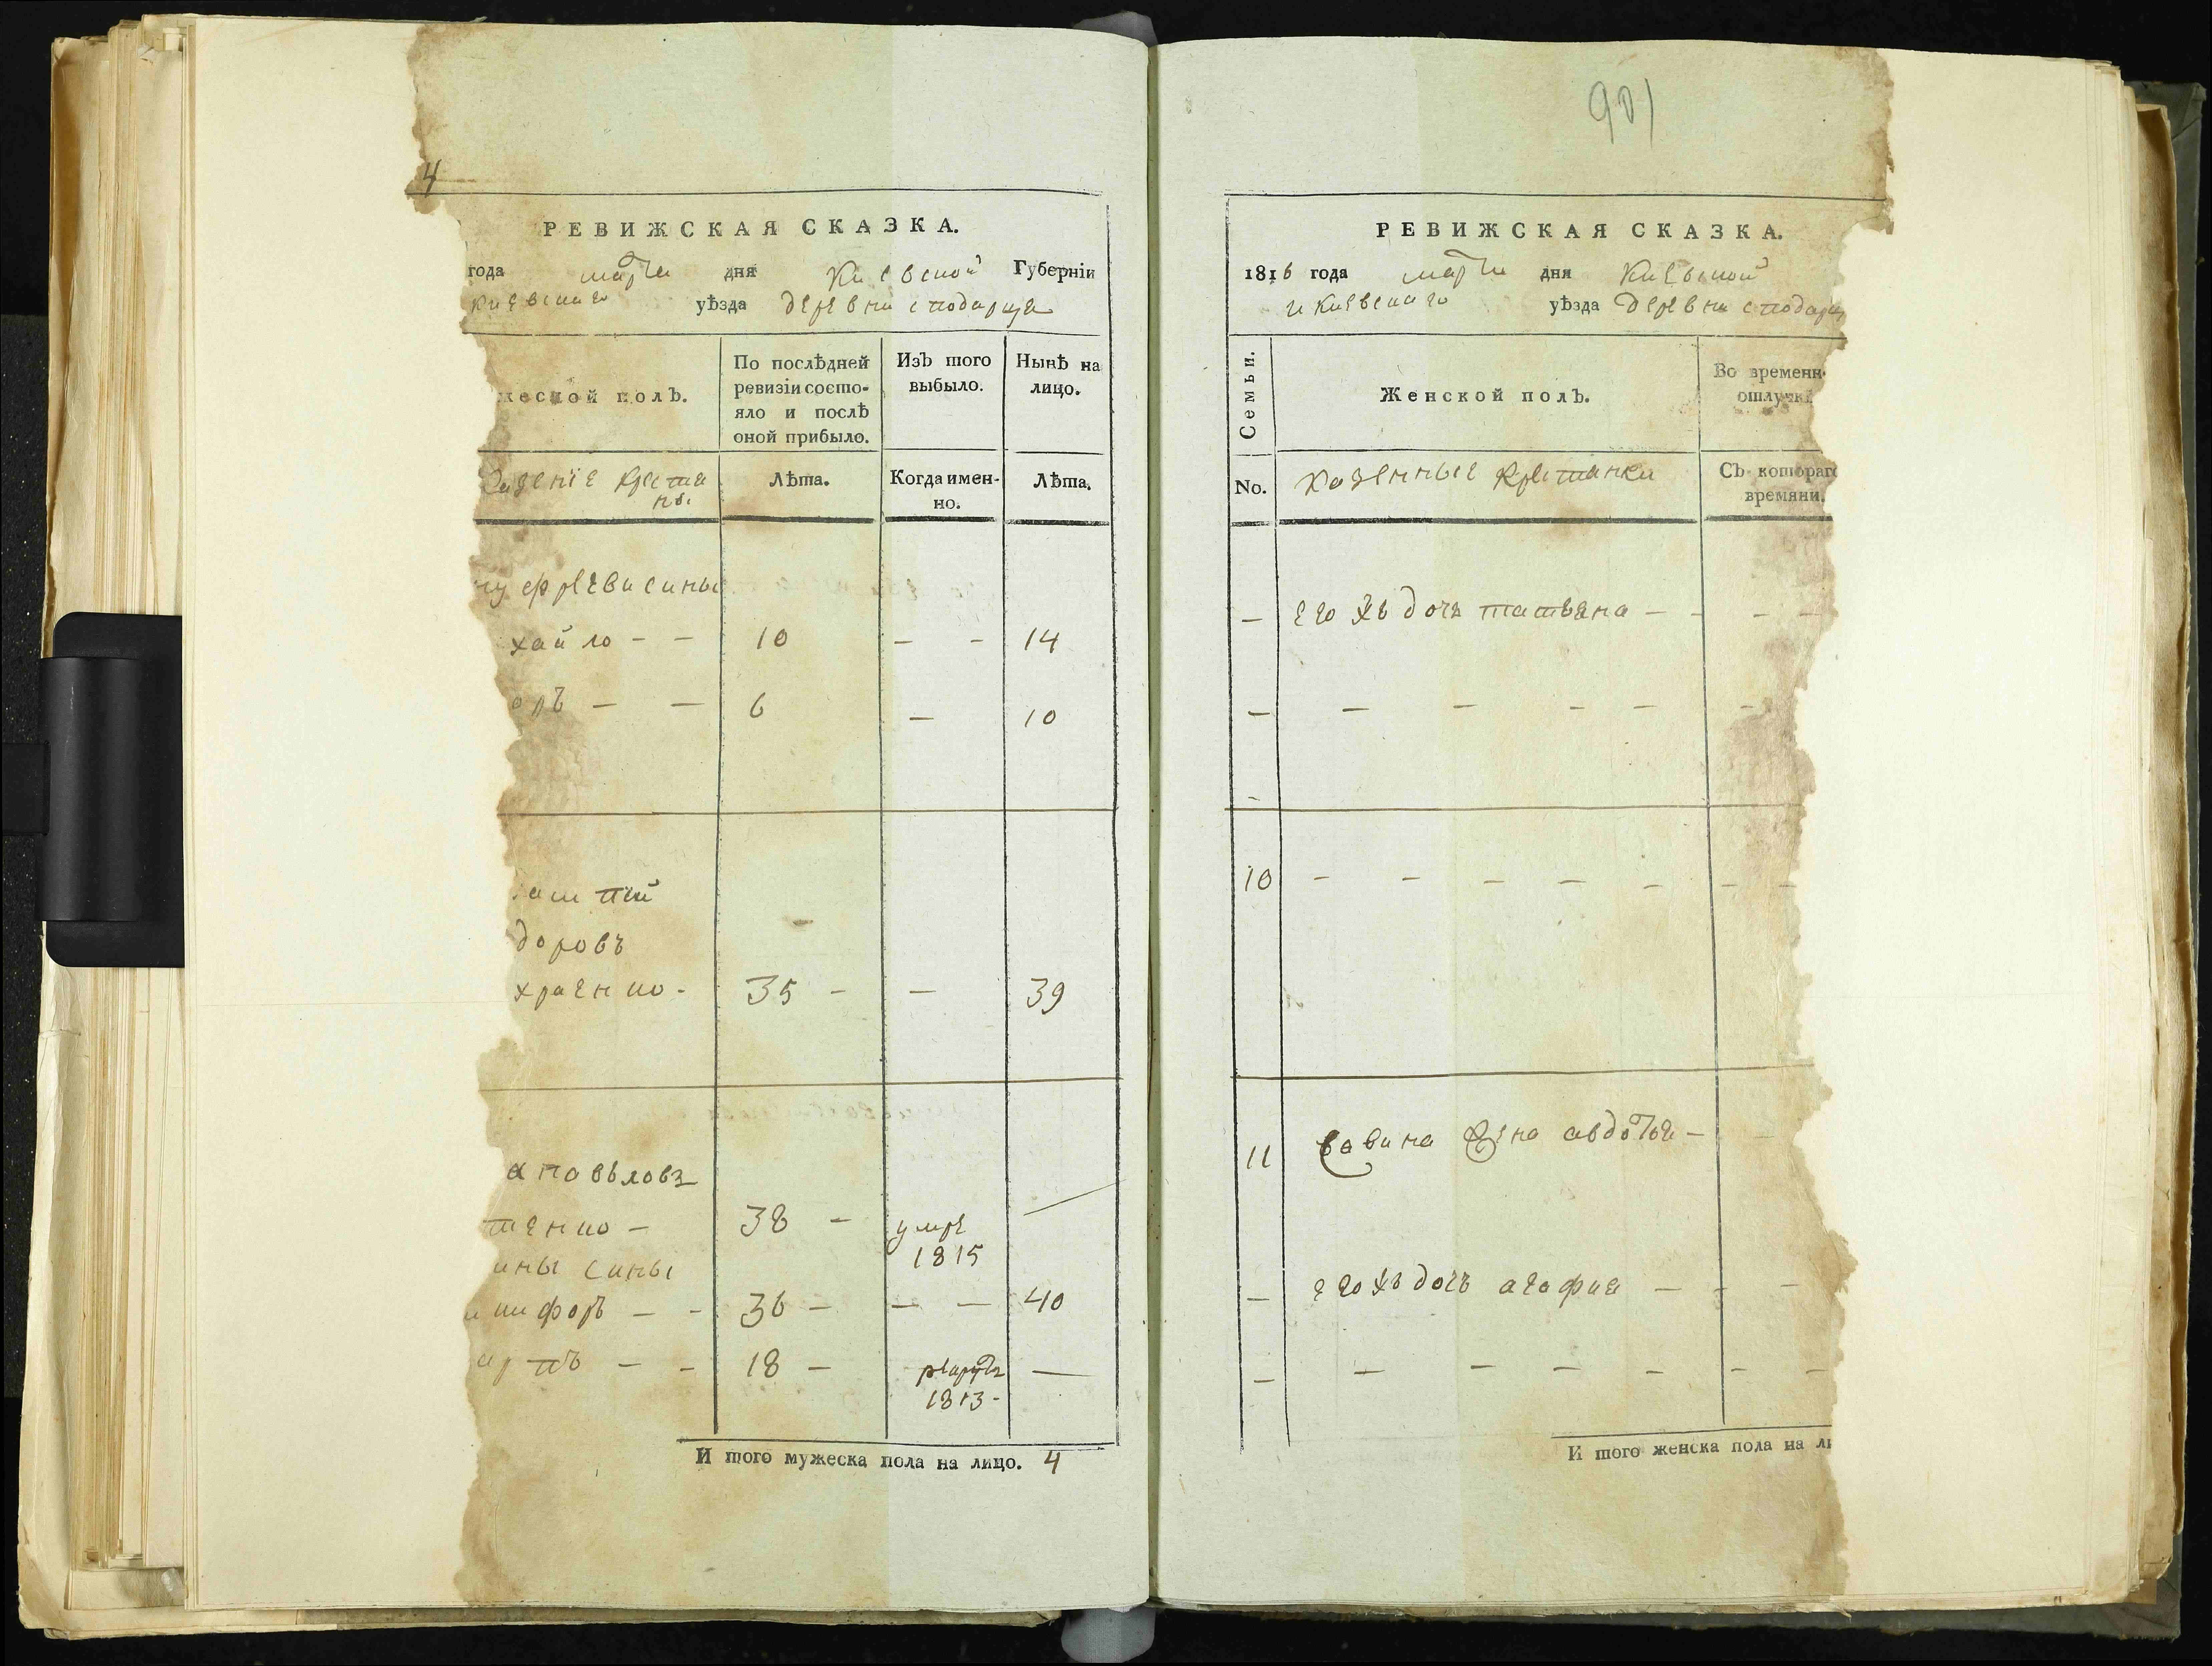 4
РЕВИЖСКАЯ СКАЗКА.
года марта дня Киевской Губерніи
Киевскаго уѣзда деревни сподарца
жеской полъ.
По послѣдней ревизіи состояло и послѣ оной прибыло.
Изъ того выбыло.
Нынѣ на лицо.
Казенніе крестяны.
Лѣта.
Когда именно.
Лѣта.
ефреевисины
хайло - - 10 - - 14
оръ - - 6 - 10
доровъ
храенко - 35 - - 39
тенко - 38 - умре 1815 -
ины сины
кифоръ - - 36 - - - 40
арпъ - - 18 - 1813 - -
И того мужеска пола на лицо. 4
901
РЕВИЖСКАЯ СКАЗКА.
1816 года марта дня Киевской
и Киевскаго уѣзда деревни сподарц
Семьи.
Женской полъ.
Во временн
отлучкѣ
No.
Казенные крестянки
Съ котораго
времяни.
- его жъ дочь татьяна - - - -
- - - - - -
10 - - - - - - -
11 савина жена авдотья - -
- его жъ дочъ агафия - - -
- - - - - - -
И того женска пола на ли